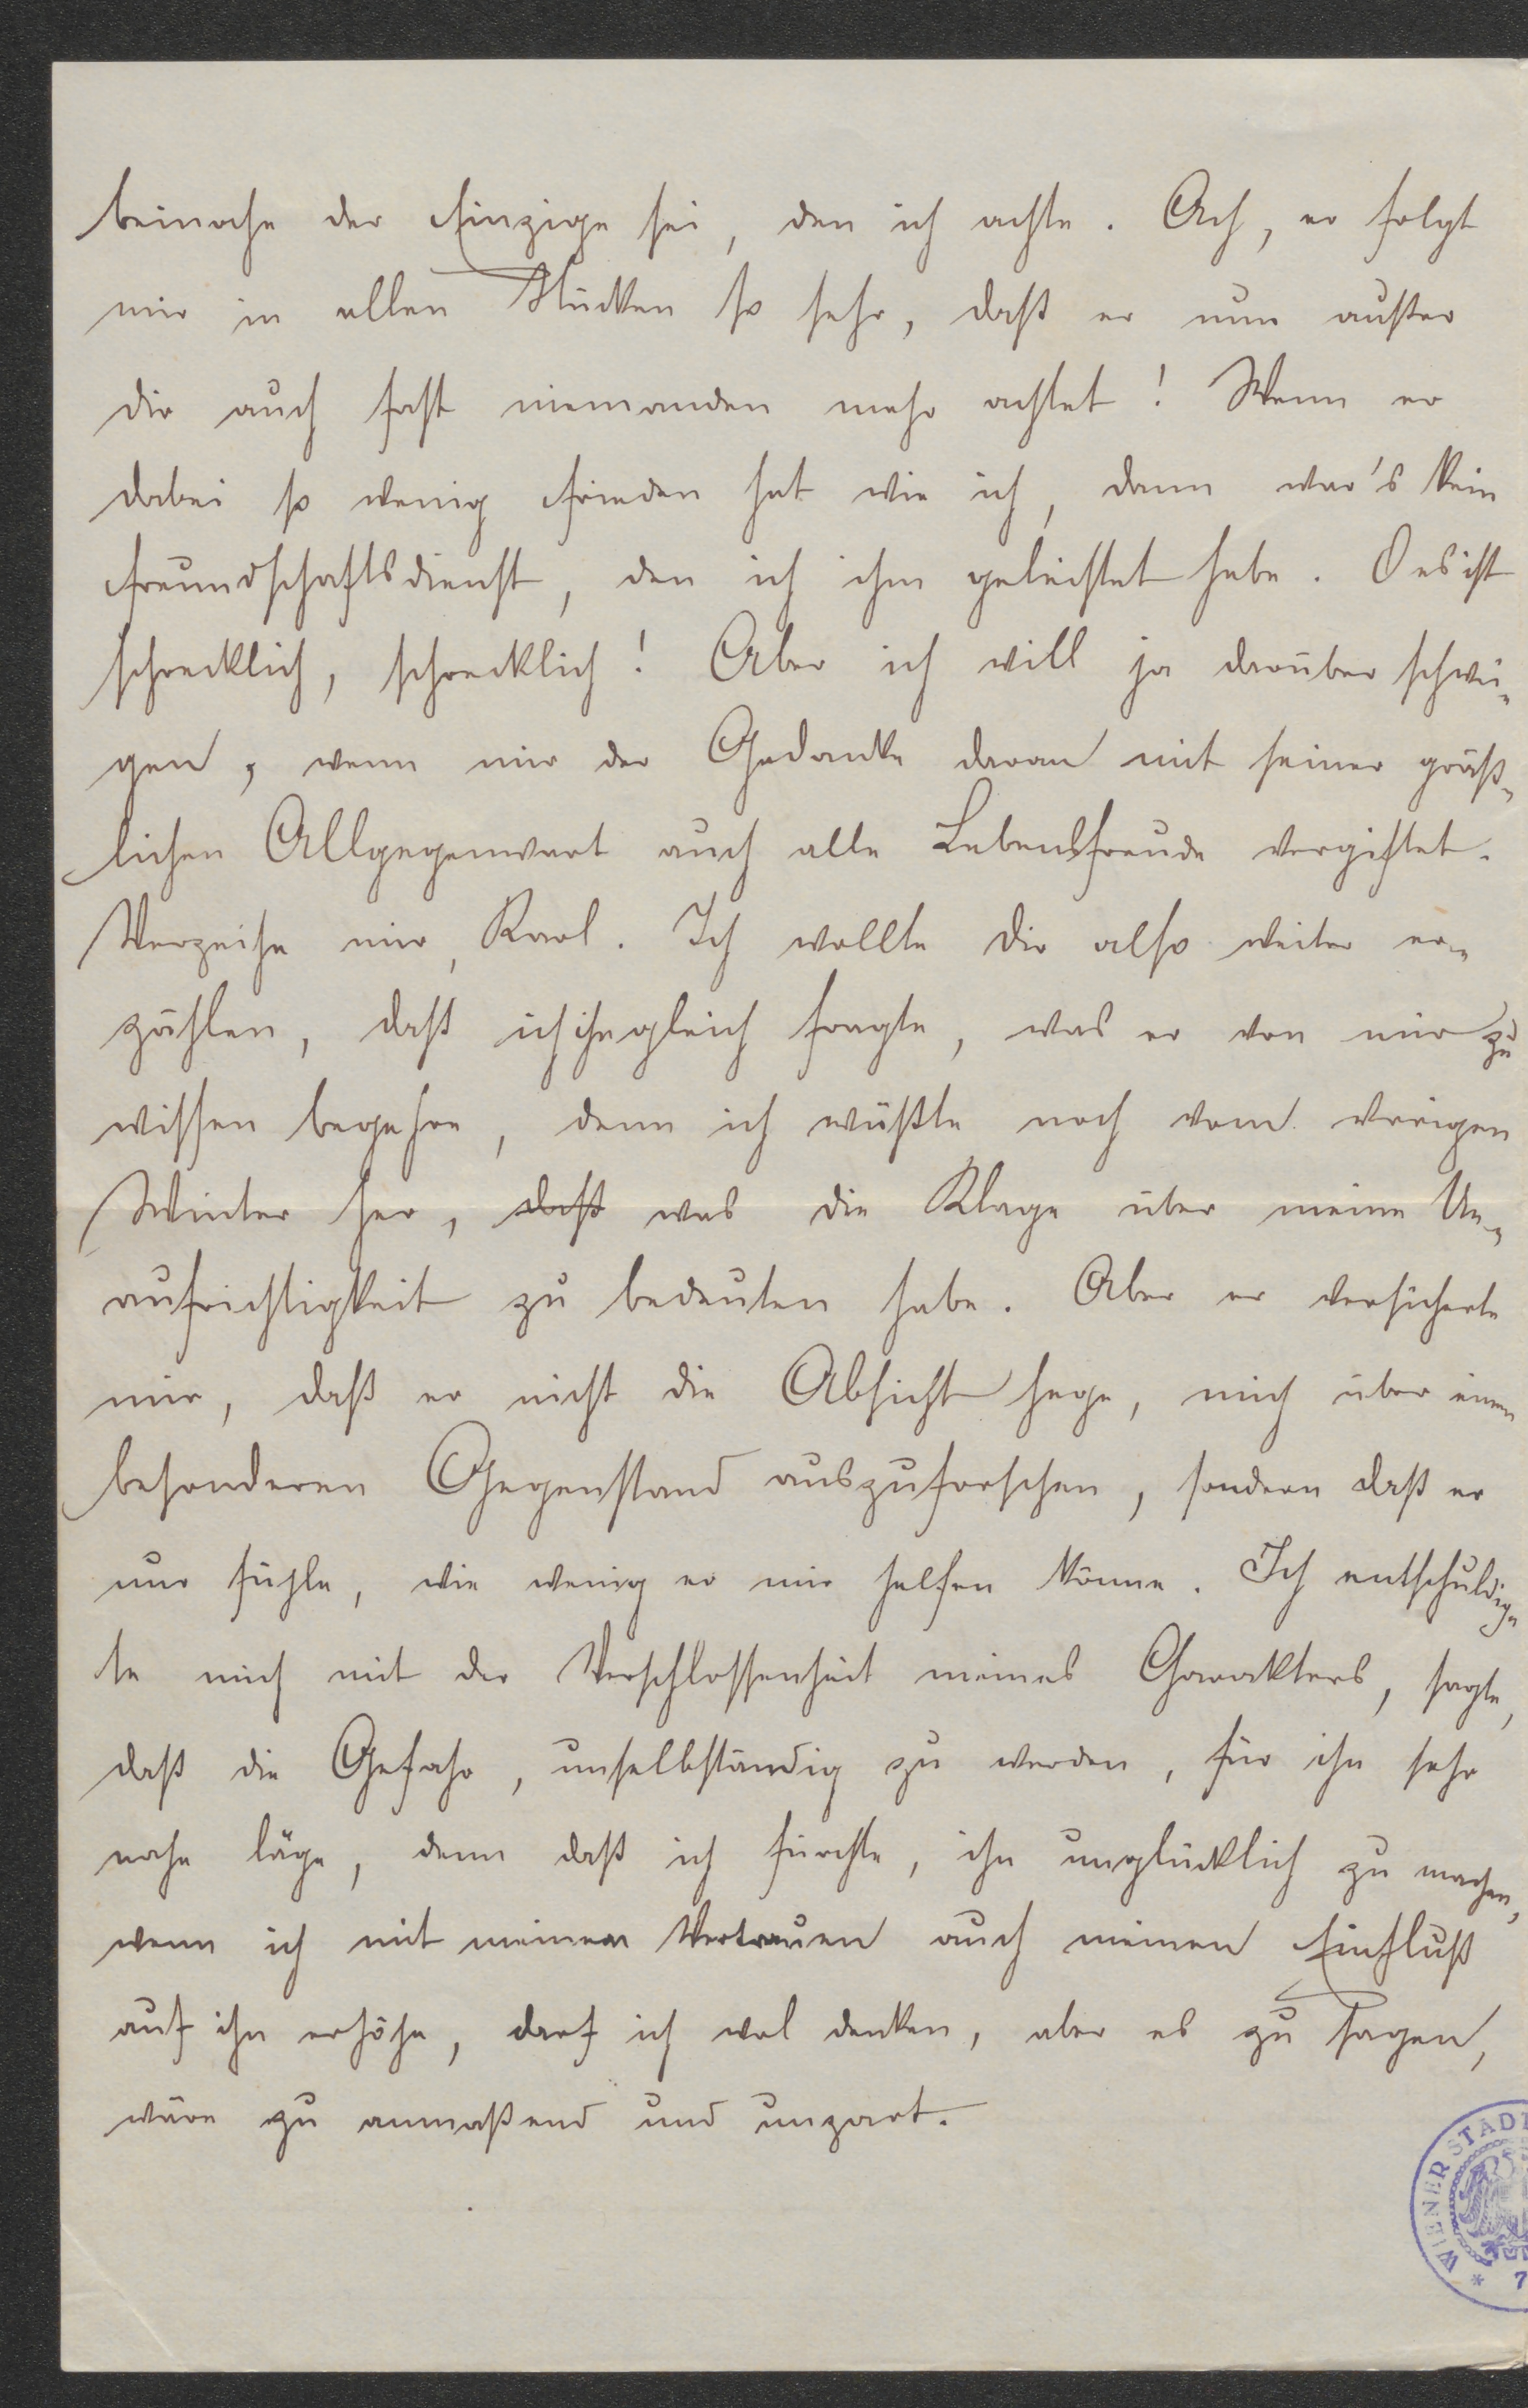 beinahe der Einzige sei, den ich achte. Ach, er folgt
mir in allen Stücken so sehr, daß er nun außer
dir auch fast niemanden mehr achtet! Wenn er
dabei so wenig Frieden hat wie ich, dann war's kein
Freundschaftsdienst, den ich ihm geleistet habe. O es ist
schrecklich, schrecklich! Aber ich will ja darüber schwei-
gen, wenn mir der Gedanke daran mit seiner gräß-
lichen Allgegenwart auch alle Lebensfreude vergiftet.
Verzeihe mir, Karl. Ich wollte dir also weiter er-
zählen, daß ich ihn gleich fragte, was er von mir zu
wissen begehre, denn ich wüßte noch vom vorigen
Winter her, daß was die Klage über meine Un-
aufrichtigkeit zu bedeuten habe. Aber er versicherte
mir, daß er nicht die Absicht hege, mich über einen
besonderen Gegenstand auszuforschen, sondern daß er
nur fühle, wie wenig er mir helfen könne. Ich entschuldig-
te mich mit der Verschlossenheit meines Charakters, sagte,
daß die Gefahr, unselbständig zu werden, für ihn sehr
nahe läge, denn daß ich fürchte, ihn unglücklich zu machen,
wenn ich mit meinem Vertrauen auch meinen Einfluß
auf ihn erhöhe, darf ich wol denken, aber es zu sagen,
wäre zu anmaßend und unzart.
WIENER STADT
* 7